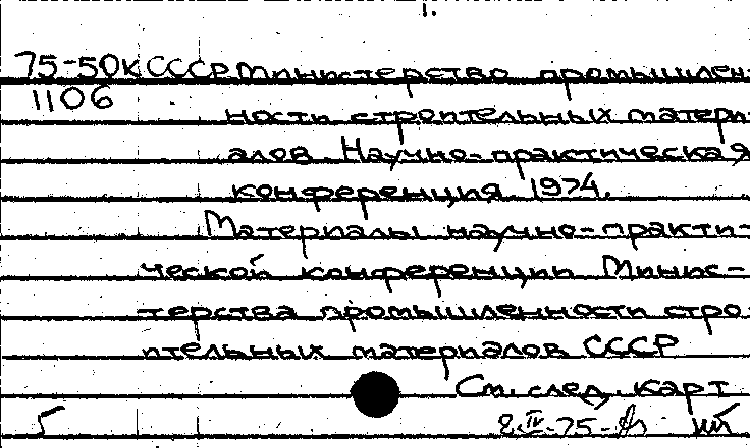 1.
75-50к СССР Министерство промышлен-
1106
ности строительных матери-
алов. Научно-практическая
конференция. 1974.
Материалы научно-практи-
ческой конференции Минис-
терства промышленности стро-
ительных материалов СССР
См. след. карт
5 8.IV-75